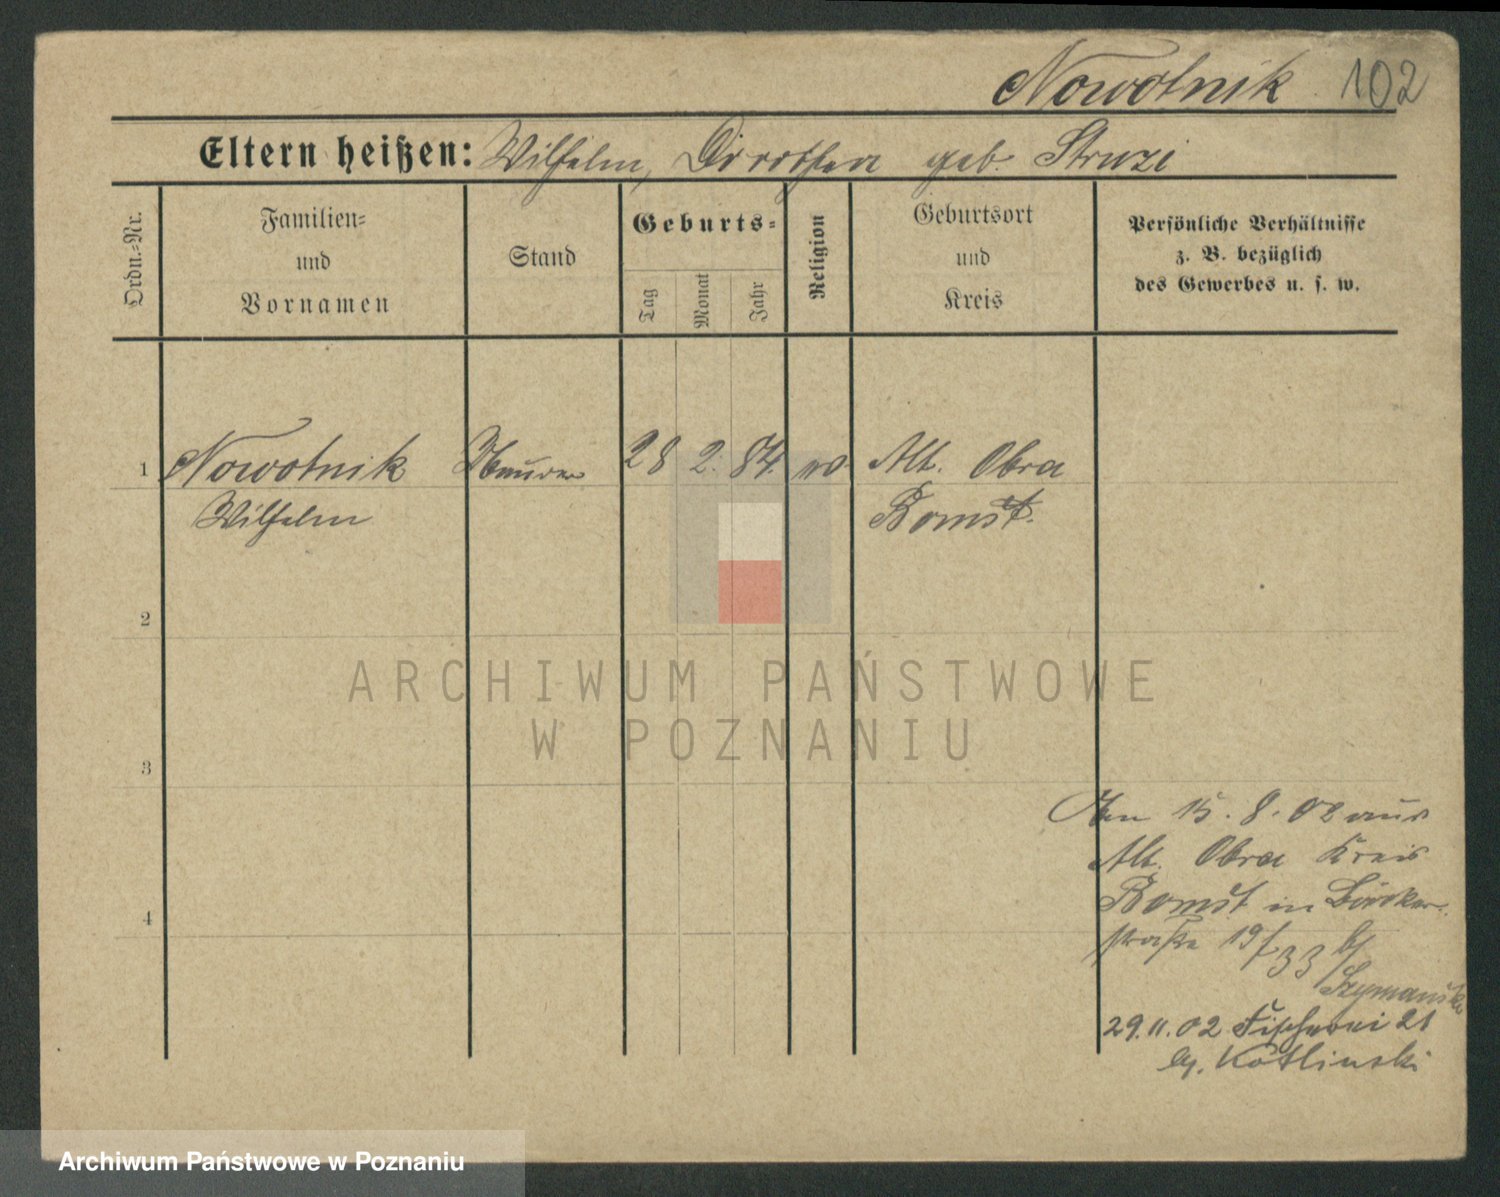 Nowotnik 102
Eltern heißen: Wilhelm, Dorothea geb. Struzi
Ordn.-Nr.
Familien-
und
Vornamen
Stand
Geburts-
Tag
Monat
Jahr
Religion
Geburtsort
und
Kreis
Persönliche Verhältnisse
z. B. bezüglich
des Gewerbes u. s. w.
1 Nowotnik Maurer 28 2. 84. Alt. Obra
Wilhelm Bomst.
2
3
4
Den 15. 8. 02 aus
Alt. Obra Kreis
Bomst in Bäcker-
straße 19/33 b/
Szymański
29.11.02 Fischerei 21
Kotlinski
ARCHIWUM PAŃSTWOWE
W POZNANIU
Archiwum Państwowe w Poznaniu